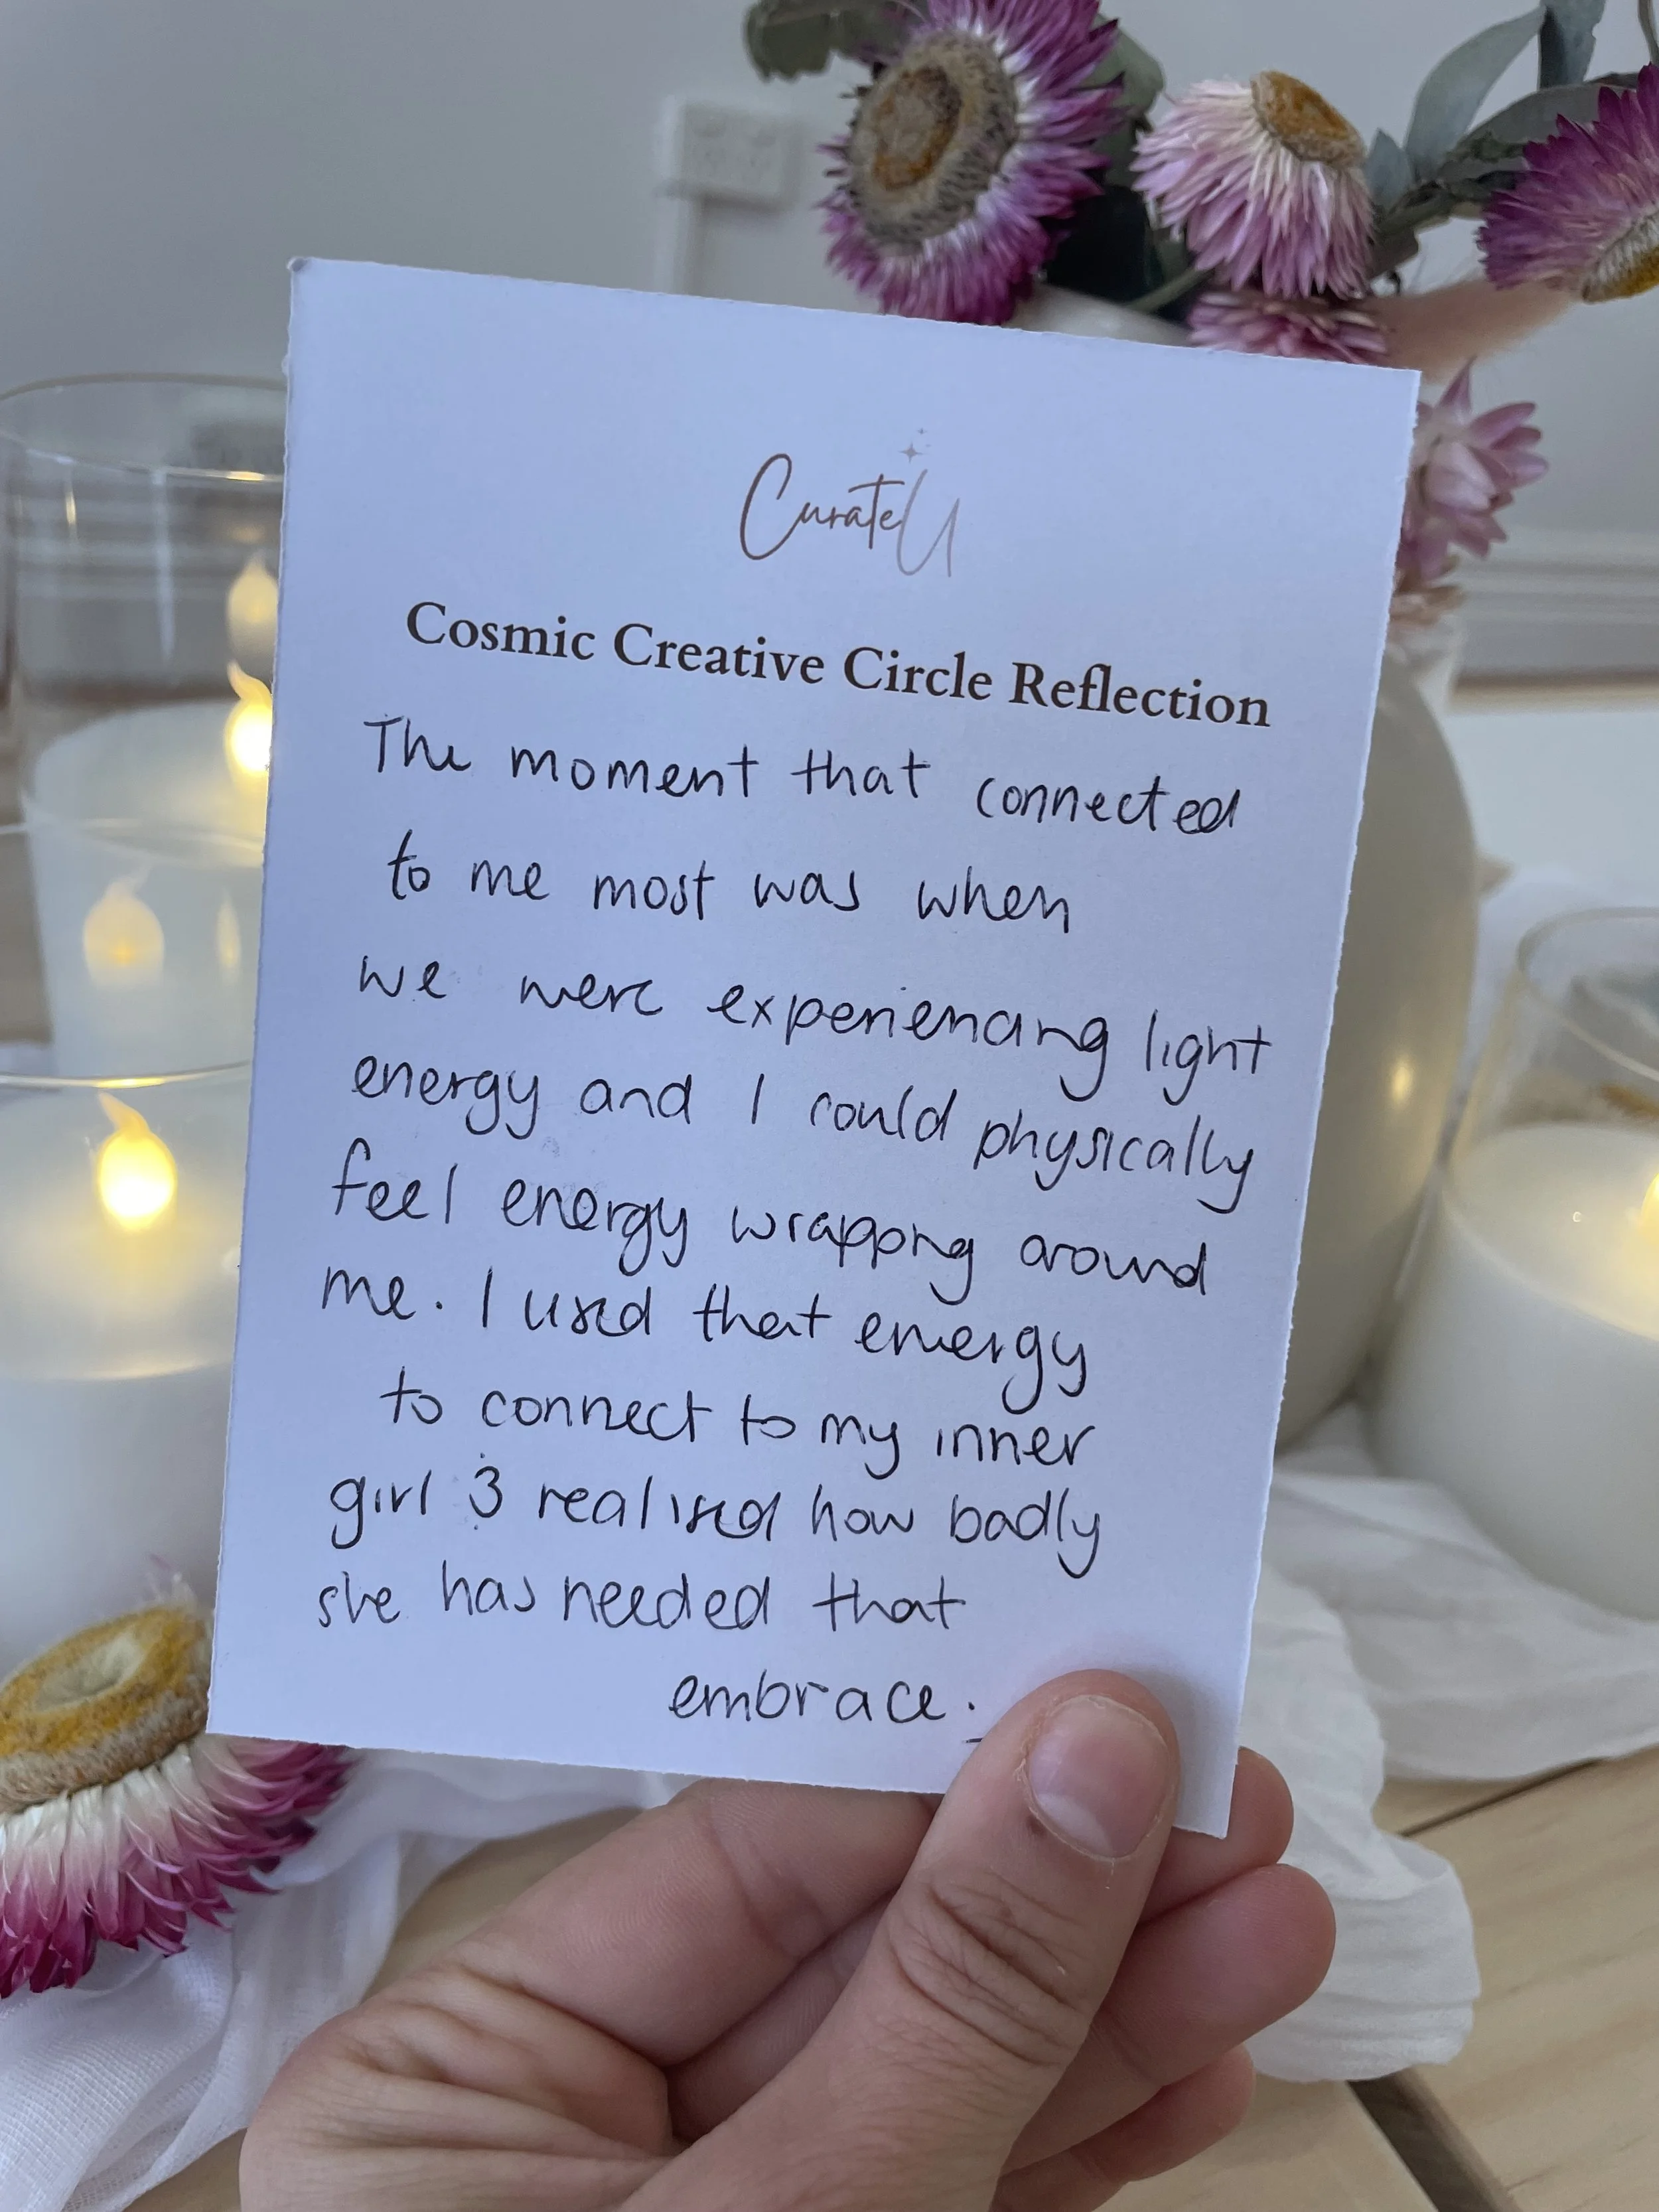 CurateU
Cosmic Creative Circle Reflection
The moment that connected
to me most was when
we were experiencing light
energy and I could physically
feel energy wrapping around
me. I used that energy
to connect to my inner
girl & realised how badly
she has needed that
embrace.